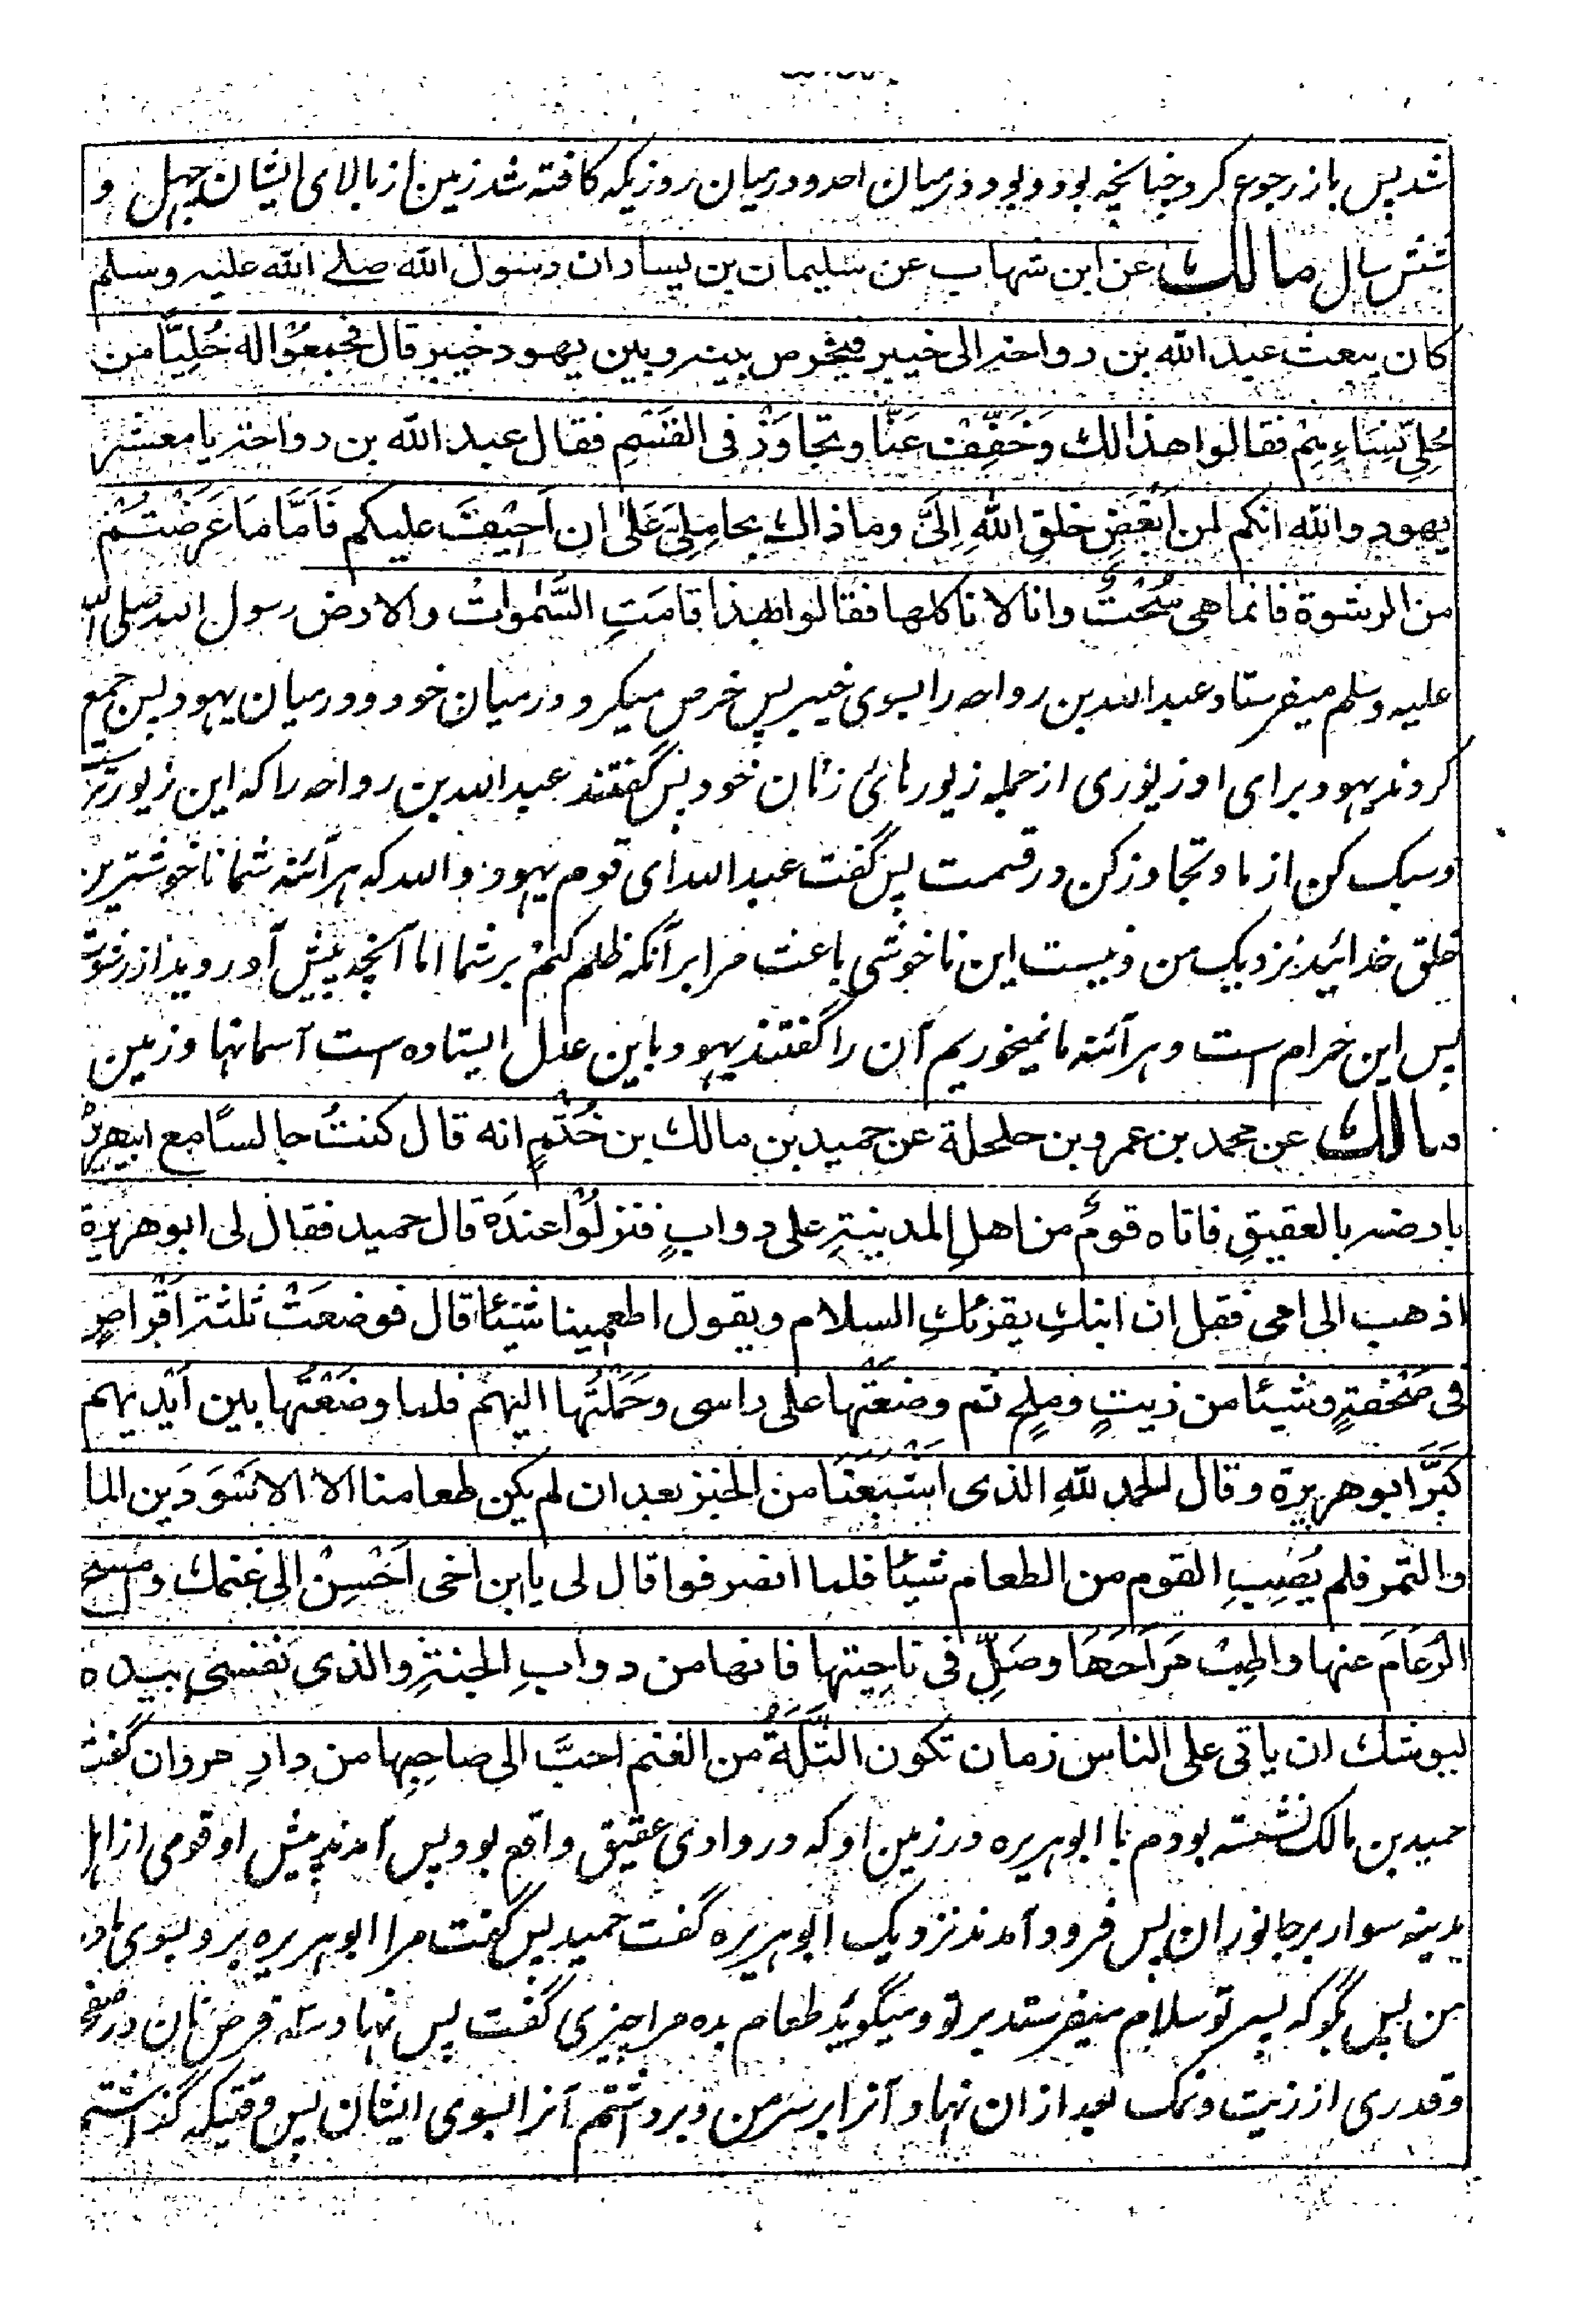 شد پس باز رجوع کرد چنانچه بود و بود در میان احد و در میان روزیکه کافته شد زمین از بالای ایشان چهل و
شش سال مالك عن ابن شهاب عن سليمان بن يسار ان رسول الله صلے الله عليه وسلم
كان يبعث عبد الله بن رواحة الى خيبر فيخرص بينه وبين يهود خيبر قال فجمعُوا له حُلِيًّا من
حُلِيِّ نِسَاءِهِمْ فقالوا هذا لك وَخَفِّفْ عَنَّا وتجاوَزْ فى القَسْمِ فقال عبد الله بن رواحة يا معشر
يهود والله انكم لمن اَبْغَضِ خلقِ اللهِ اِلَىَّ وما ذاك بحامِلِى عَلىٰ ان اَحِيْفَ عليكم فَاَمَّا مَا عَرَضْتُمْ
من الرشوة فانما هى سُحْتٌ وانا لا ناكلها فقالوا بهذا قامَتِ السَّمٰواتُ والارض رسول الله صلی الله
علیه وسلم میفرستاد عبد الله بن رواحه را بسوی خیبر پس خرص میکرد در میان خود و در میان یهود پس جمع
کردند یهود برای او زیوری از جمله زیورهائ زنان خود پس گفتند عبد الله بن رواحه را که این زیور تراست
و سبک کن از ما و تجاوز کن در قسمت پس گفت عبد الله ای قوم یهود والله که هرآئنه شما ناخوشترین
خلق خدائید نزدیک من و نیست این ناخوشی باعث مرا بر آنکه ظلم کنم بر شما اما آنچه پیش آوردید از رشوت
پس این حرام ست و هرآئنه ما نمیخوریم آن را گفتند یهود باین عدل ایستاده ست آسمانها و زمین
مالك عن محمد بن عمرو بن حلحلة عن حميد بن مالك بن خُثَمٍ انه قال كنتُ جالسًا مع ابيهريرة
بارضه بالعقيقِ فاتاه قومٌ من اهلِ المدينةِ على دوابٍ فنزلُوْا عندَهٗ قال حميد فقال لى ابو هريرة
اذهب الى امى فقل ان ابنكِ يقرئكِ السلام ويقول اطعمينا شيئا قال فوضعَتْ ثلثة اَقْراصٍ
فى صَحْفةٍ وشيئا من زيتٍ وملحٍ ثم وضعَتْها على راسى وحَمَلْتُها اليهم فلما وضَعْتُها بين اَيْديهم
كَبَّرَ ابو هريرة وقال الحمد للهِ الذى اَشْبَعَنَا من الخبز بعد ان لم يكن طعامنا الا الاَسْوَدَين الما
والتمر فلم يُصِيبِ القوم من الطعام شيئا فلما انصرفوا قال لى يا ابن اخى اَحْسِنْ الى غنمك وامسح
الرُّعَامَ عنها واطِبْ مَرَاحَهَا وصَلِّ فى ناحِيتها فانها من دوابِ الجنةِ والذى نفسى بيده
ليوشك ان ياتى على الناس زمان تكون الثَّلَّةُ من الغنم احبَّ الى صاحِبِها من دارِ مروان گفت
حمید بن مالک نشسته بودم با ابو هریره در زمین او که در وادی عقیق واقع بود پس آمدند پیش او قومی از اهل
مدینه سوار بر جانوران پس فرود آمدند نزدیک ابو هریره گفت حمید پس گفت مرا ابو هریره برو بسوی مادر
من پس بگو که پسر تو سلام میفرستد بر تو و میگوید طعام بده مرا چیزی گفت پس نهاد سه قرص نان در صفحه
و قدری از زیت و نمک بعد از ان نهاد آنرا بر سر من و برداشتم آنرا بسوی ایشان پس وقتیکه گذاشتم